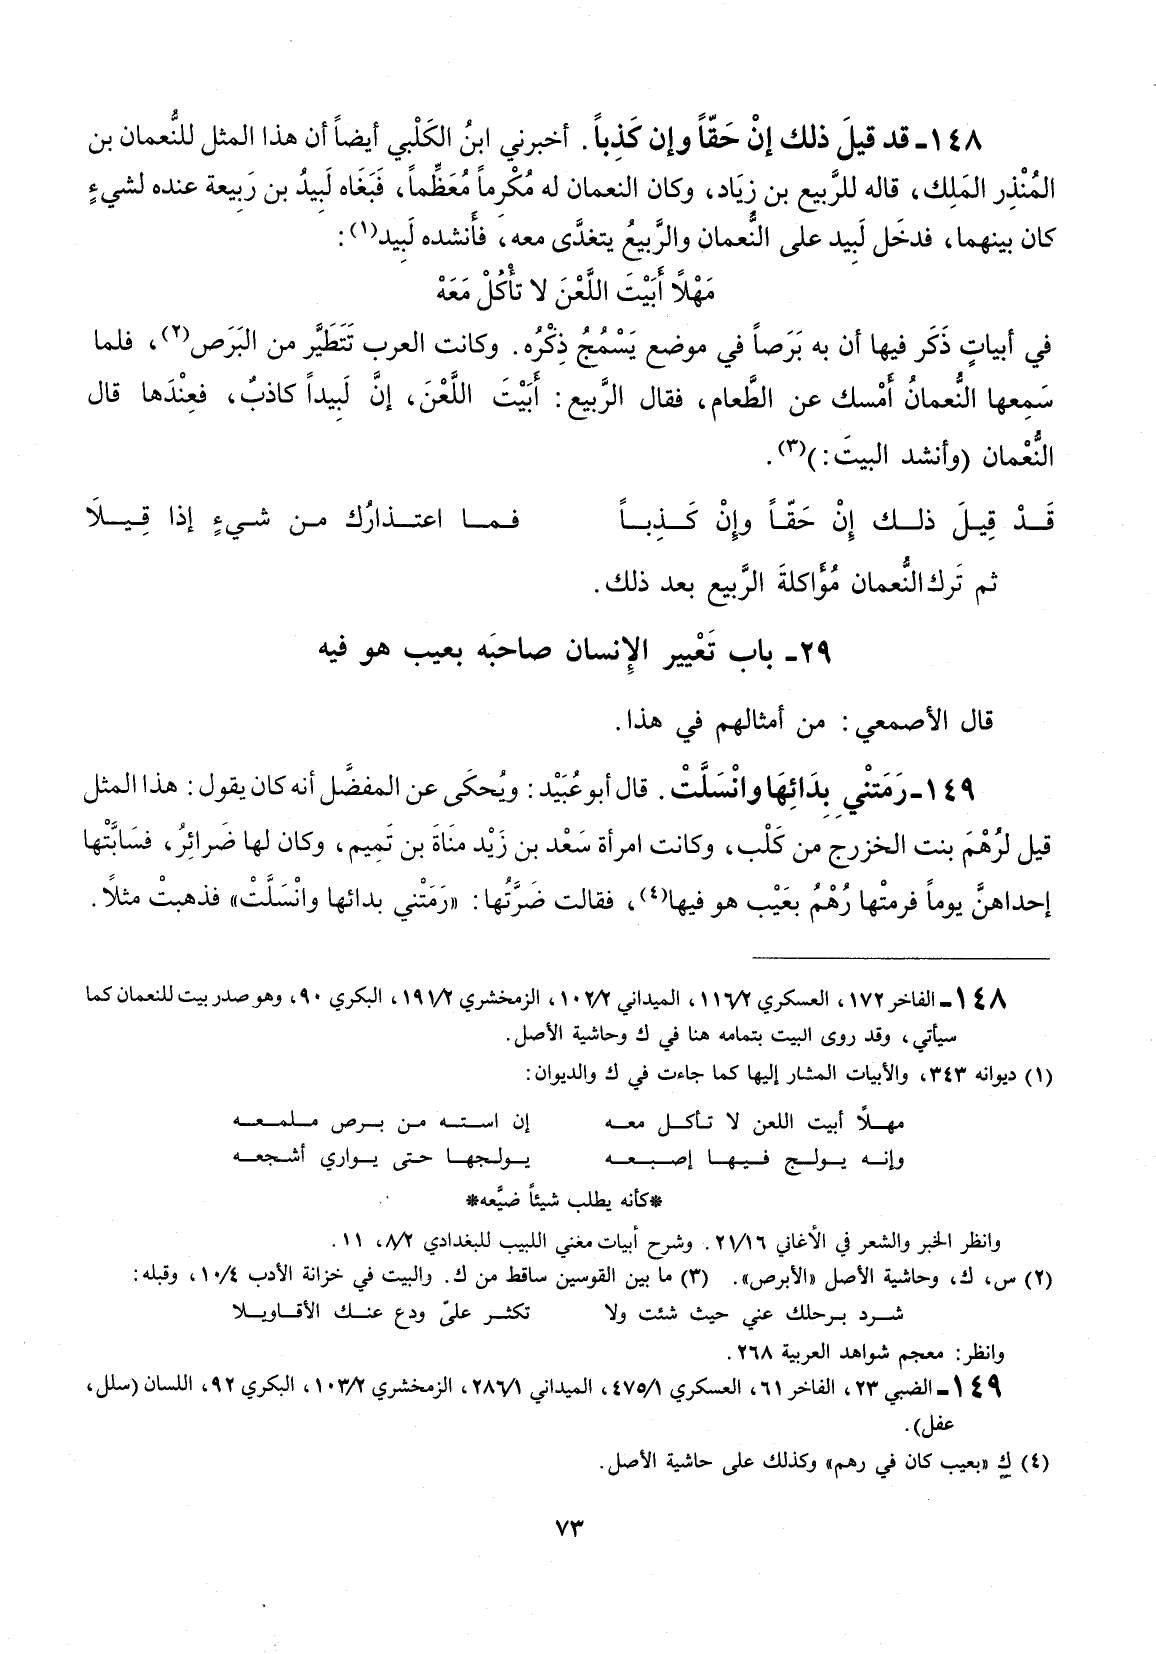 ١٤٨- قد قيلَ ذلك إنْ حَقّاً وإن كَذِباً. أخبرني ابنُ الكَلْبي أيضاً أن هذا المثل للنُّعمان بن
المُنْذِر المَلِك، قاله للرَّبيع بن زِيَاد، وكان النعمان له مُكْرِماً مُعَظِّماً، فَبَغَاه لَبِيدُ بن رَبِيعة عنده لشيءٍ
كان بينهما، فدخَل لَبِيد على النُّعمان والرَّبيعُ يتغدَّى معه، فأَنشده لَبِيد(١):
مَهْلاً أَبَيْتَ اللَّعْنَ لا تأْكُلْ مَعَهْ
في أبياتٍ ذَكَر فيها أن به بَرَصاً في موضع يَسْمُجُ ذِكْرُه. وكانت العرب تَتَطَيَّر من البَرَص(٢)، فلما
سَمِعها النُّعمانُ أَمْسك عن الطَّعام، فقال الرَّبيع: أَبَيْتَ اللَّعْنَ، إنَّ لَبِيداً كاذبٌ، فعِنْدَها قال
النُّعْمان (وأنشد البيتَ:)(٣).
قَدْ قِيلَ ذلك إنْ حَقّاً وإنْ كَذِباً فما اعتذارُك من شيءٍ إذا قِيلَا
ثم تَرك النُّعمان مُؤَاكلةَ الرَّبيع بعد ذلك.
٢٩- باب تَعْيير الإنسان صاحبَه بعيب هو فيه
قال الأصمعي: من أمثالهم في هذا.
١٤٩-رَمَتْنِي بِدَائِهَا وانْسَلَّتْ. قال أبو عُبَيْد: ويُحكَى عن المفضَّل أنه كان يقول: هذا المثل
قيل لرُهْمَ بنت الخزرج من كَلْب، وكانت امرأة سَعْد بن زَيْد مَنَاةَ بن تَمِيم، وكان لها ضَرائِرُ، فسَابَّتْها
إحداهنَّ يوماً فرمتْها رُهْمُ بعَيْب هو فيها(٤)، فقالت ضَرَّتُها: «رَمَتْني بدائها وانْسَلَّتْ» فذهبتْ مثلاً.
١٤٨- الفاخر ١٧٢، العسكري ١١٦/٢، الميداني ١٠٢/٢، الزمخشري ١٩١/٢، البكري ٩٠، وهو صدر بيت للنعمان كما
سيأتي، وقد روى البيت بتمامه هنا في ك وحاشية الأصل.
(١) ديوانه ٣٤٣، والأبيات المشار إليها كما جاءت في ك والديوان:
مهلًا أبيت اللعن لا تأكل معه إن استه من برص ملمعه
وإنه يولج فيها إصبعه يولجها حتى يواري أشجعه
*كأنه يطلب شيئاً ضيَّعه*
وانظر الخبر والشعر في الأغاني ٢١/١٦. وشرح أبيات مغني اللبيب للبغدادي ٨/٢، ١١.
(٢) س، ك، وحاشية الأصل «الأبرص». (٣) ما بين القوسين ساقط من ك. والبيت في خزانة الأدب ١٠/٤، وقبله:
شرد برحلك عني حيث شئت ولا تكثر عليّ ودع عنك الأقاويلا
وانظر: معجم شواهد العربية ٢٦٨.
١٤٩- الضبي ٢٣، الفاخر ٦١، العسكري ٤٧٥/١، الميداني ٢٨٦/١، الزمخشري ١٠٣/٢، البكري ٩٢، اللسان (سلل،
عفل).
(٤) ك «بعيب كان في رهم» وكذلك على حاشية الأصل.
٧٣